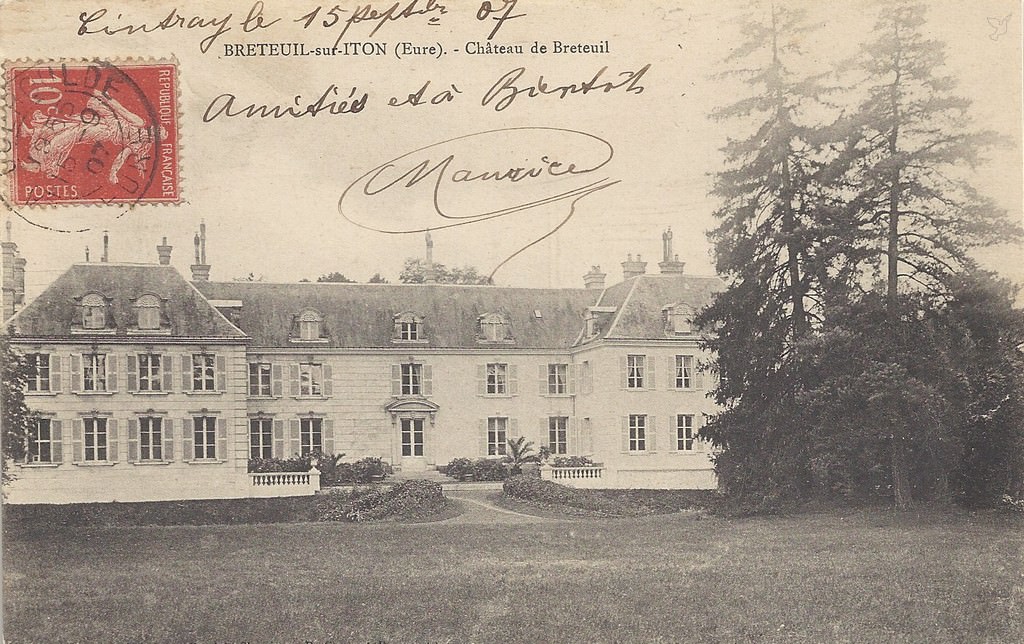 Cintray le 15 septbre 07
BRETEUIL-sur-ITON (Eure). - Château de Breteuil
10
REPUBLIQUE FRANÇAISE
POSTES
Amitiés et à Bientôt
Maurice